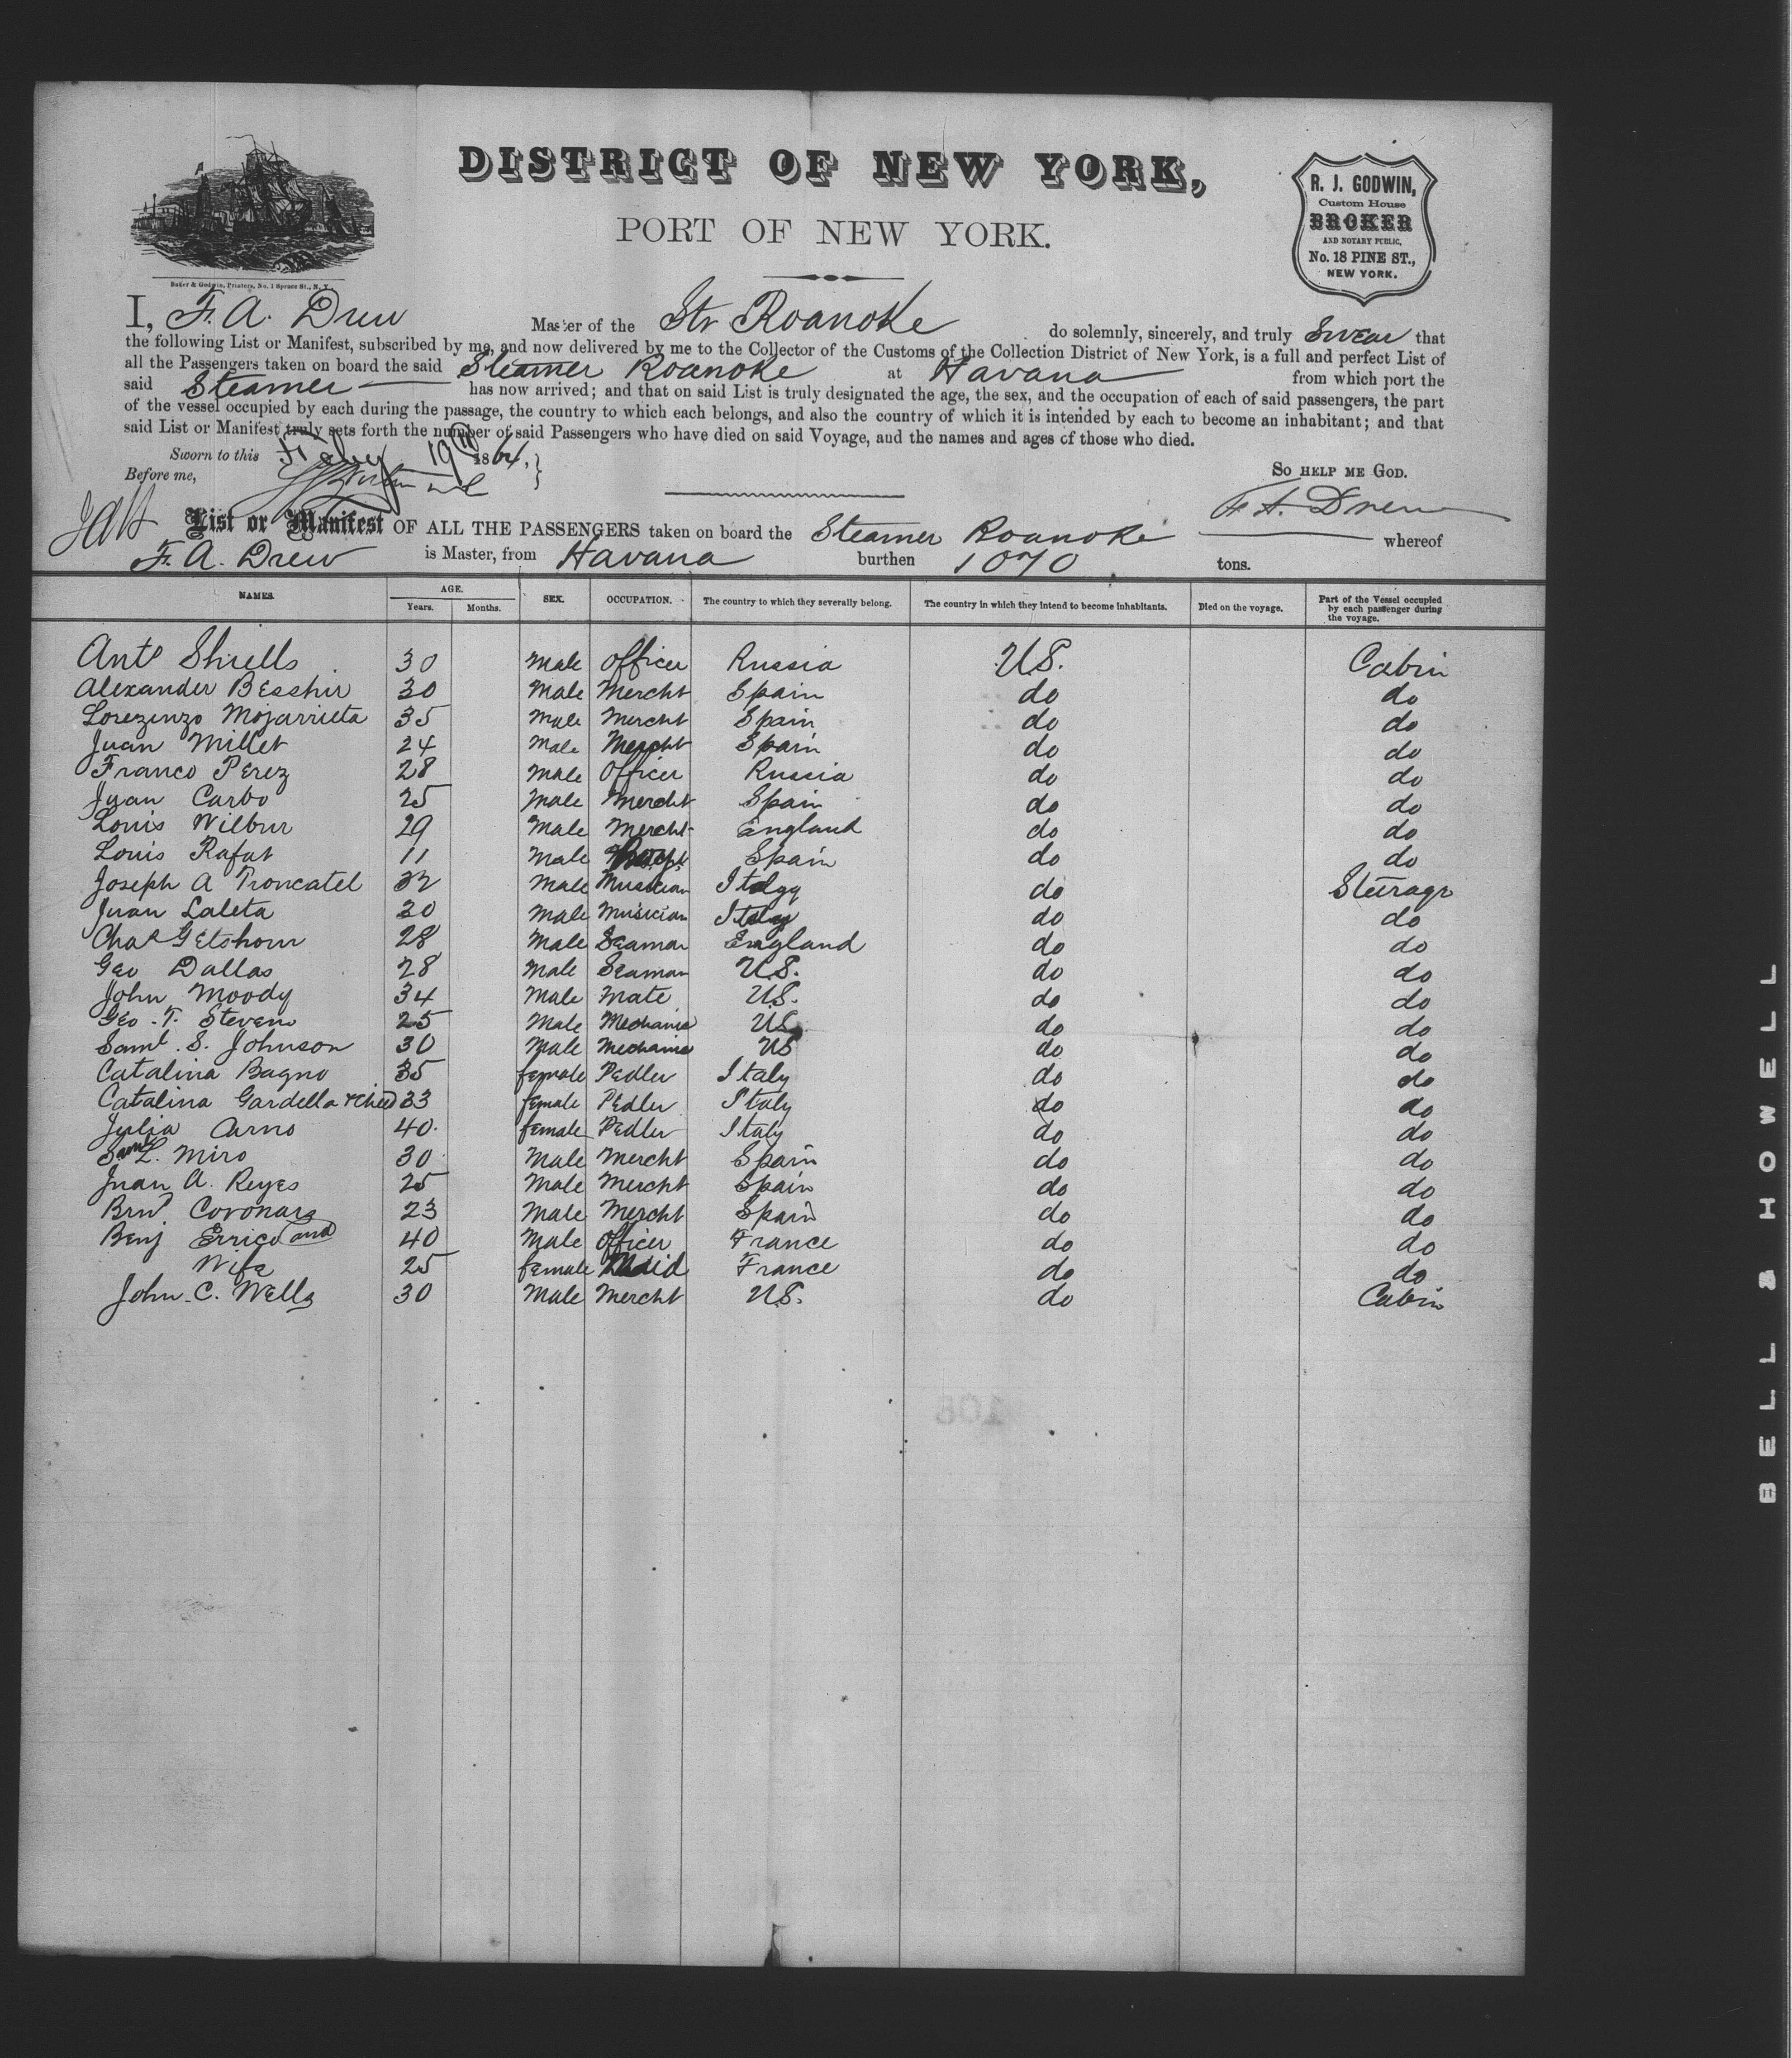 DISTRICT OF NEW YORK,
PORT OF NEW YORK.
R. J. GODWIN,
Custom House
BROKER
AND NOTARY PUBLIC,
No. 18 PINE ST.,
NEW YORK.
Baker & Godwin, Printers, No. 1 Spruce St., N. Y.
I, F. A. Drew Master of the Str Roanoke do solemnly, sincerely, and truly Swear that
the following List or Manifest, subscribed by me, and now delivered by me to the Collector of the Customs of the Collection District of New York, is a full and perfect List of
all the Passengers taken on board the said Steamer Roanoke at Havana from which port the
said Steamer has now arrived; and that on said List is truly designated the age, the sex, and the occupation of each of said passengers, the part
of the vessel occupied by each during the passage, the country to which each belongs, and also the country of which it is intended by each to become an inhabitant; and that
said List or Manifest truly sets forth the number of said Passengers who have died on said Voyage, and the names and ages of those who died.
Sworn to this Feby 19th 1864,
Before me,
SO HELP ME GOD.
F. A. Drew
List or Manifest OF ALL THE PASSENGERS taken on board the Steamer Roanoke whereof
F. A. Drew is Master, from Havana burthen 1070 tons.
NAMES. AGE. Years. Months. SEX. OCCUPATION. The country to which they severally belong. The country in which they intend to become inhabitants. Died on the voyage. Part of the Vessel occupied by each passenger during the voyage.
Anto Shiells 30 Male Officer Russia U.S. Cabin
Alexander Besshir 30 Male Mercht Spain do do
Lorezenzo Mojarrieta 35 Male Mercht Spain do do
Juan Millet 24 Male Mercht Spain do do
Franco Perez 28 Male Officer Russia do do
Juan Carbo 25 Male Mercht Spain do do
Louis Wilbur 29 Male Mercht England do do
Louis Rafat 11 Male Spain do do
Joseph A Troncatel 32 Male Musician Italy do Steerage
Juan Laleta 30 Male Musician Italy do do
Chas Getshom 28 Male Seaman England do do
Geo Dallas 28 Male Seaman U.S. do do
John Moody 34 Male Mate U.S. do do
Geo. T. Stevens 25 Male Mechanic US do do
Saml. S. Johnson 30 Male Mechanic US do do
Catalina Bagno 35 female Pedler Italy do do
Catalina Gardella & child 33 female Pedler Italy do do
Julia Arno 40. female Pedler Italy do do
Saml L. Miro 30 Male Mercht Spain do do
Juan A. Reyes 25 Male Mercht Spain do do
Brno Coronara 23 Male Mercht Spain do do
Benj Errico and 40 Male Officer France do do
Wife 25 female Maid France do do
John. C. Wells 30 Male Mercht U.S. do Cabin
BELL & HOWELL